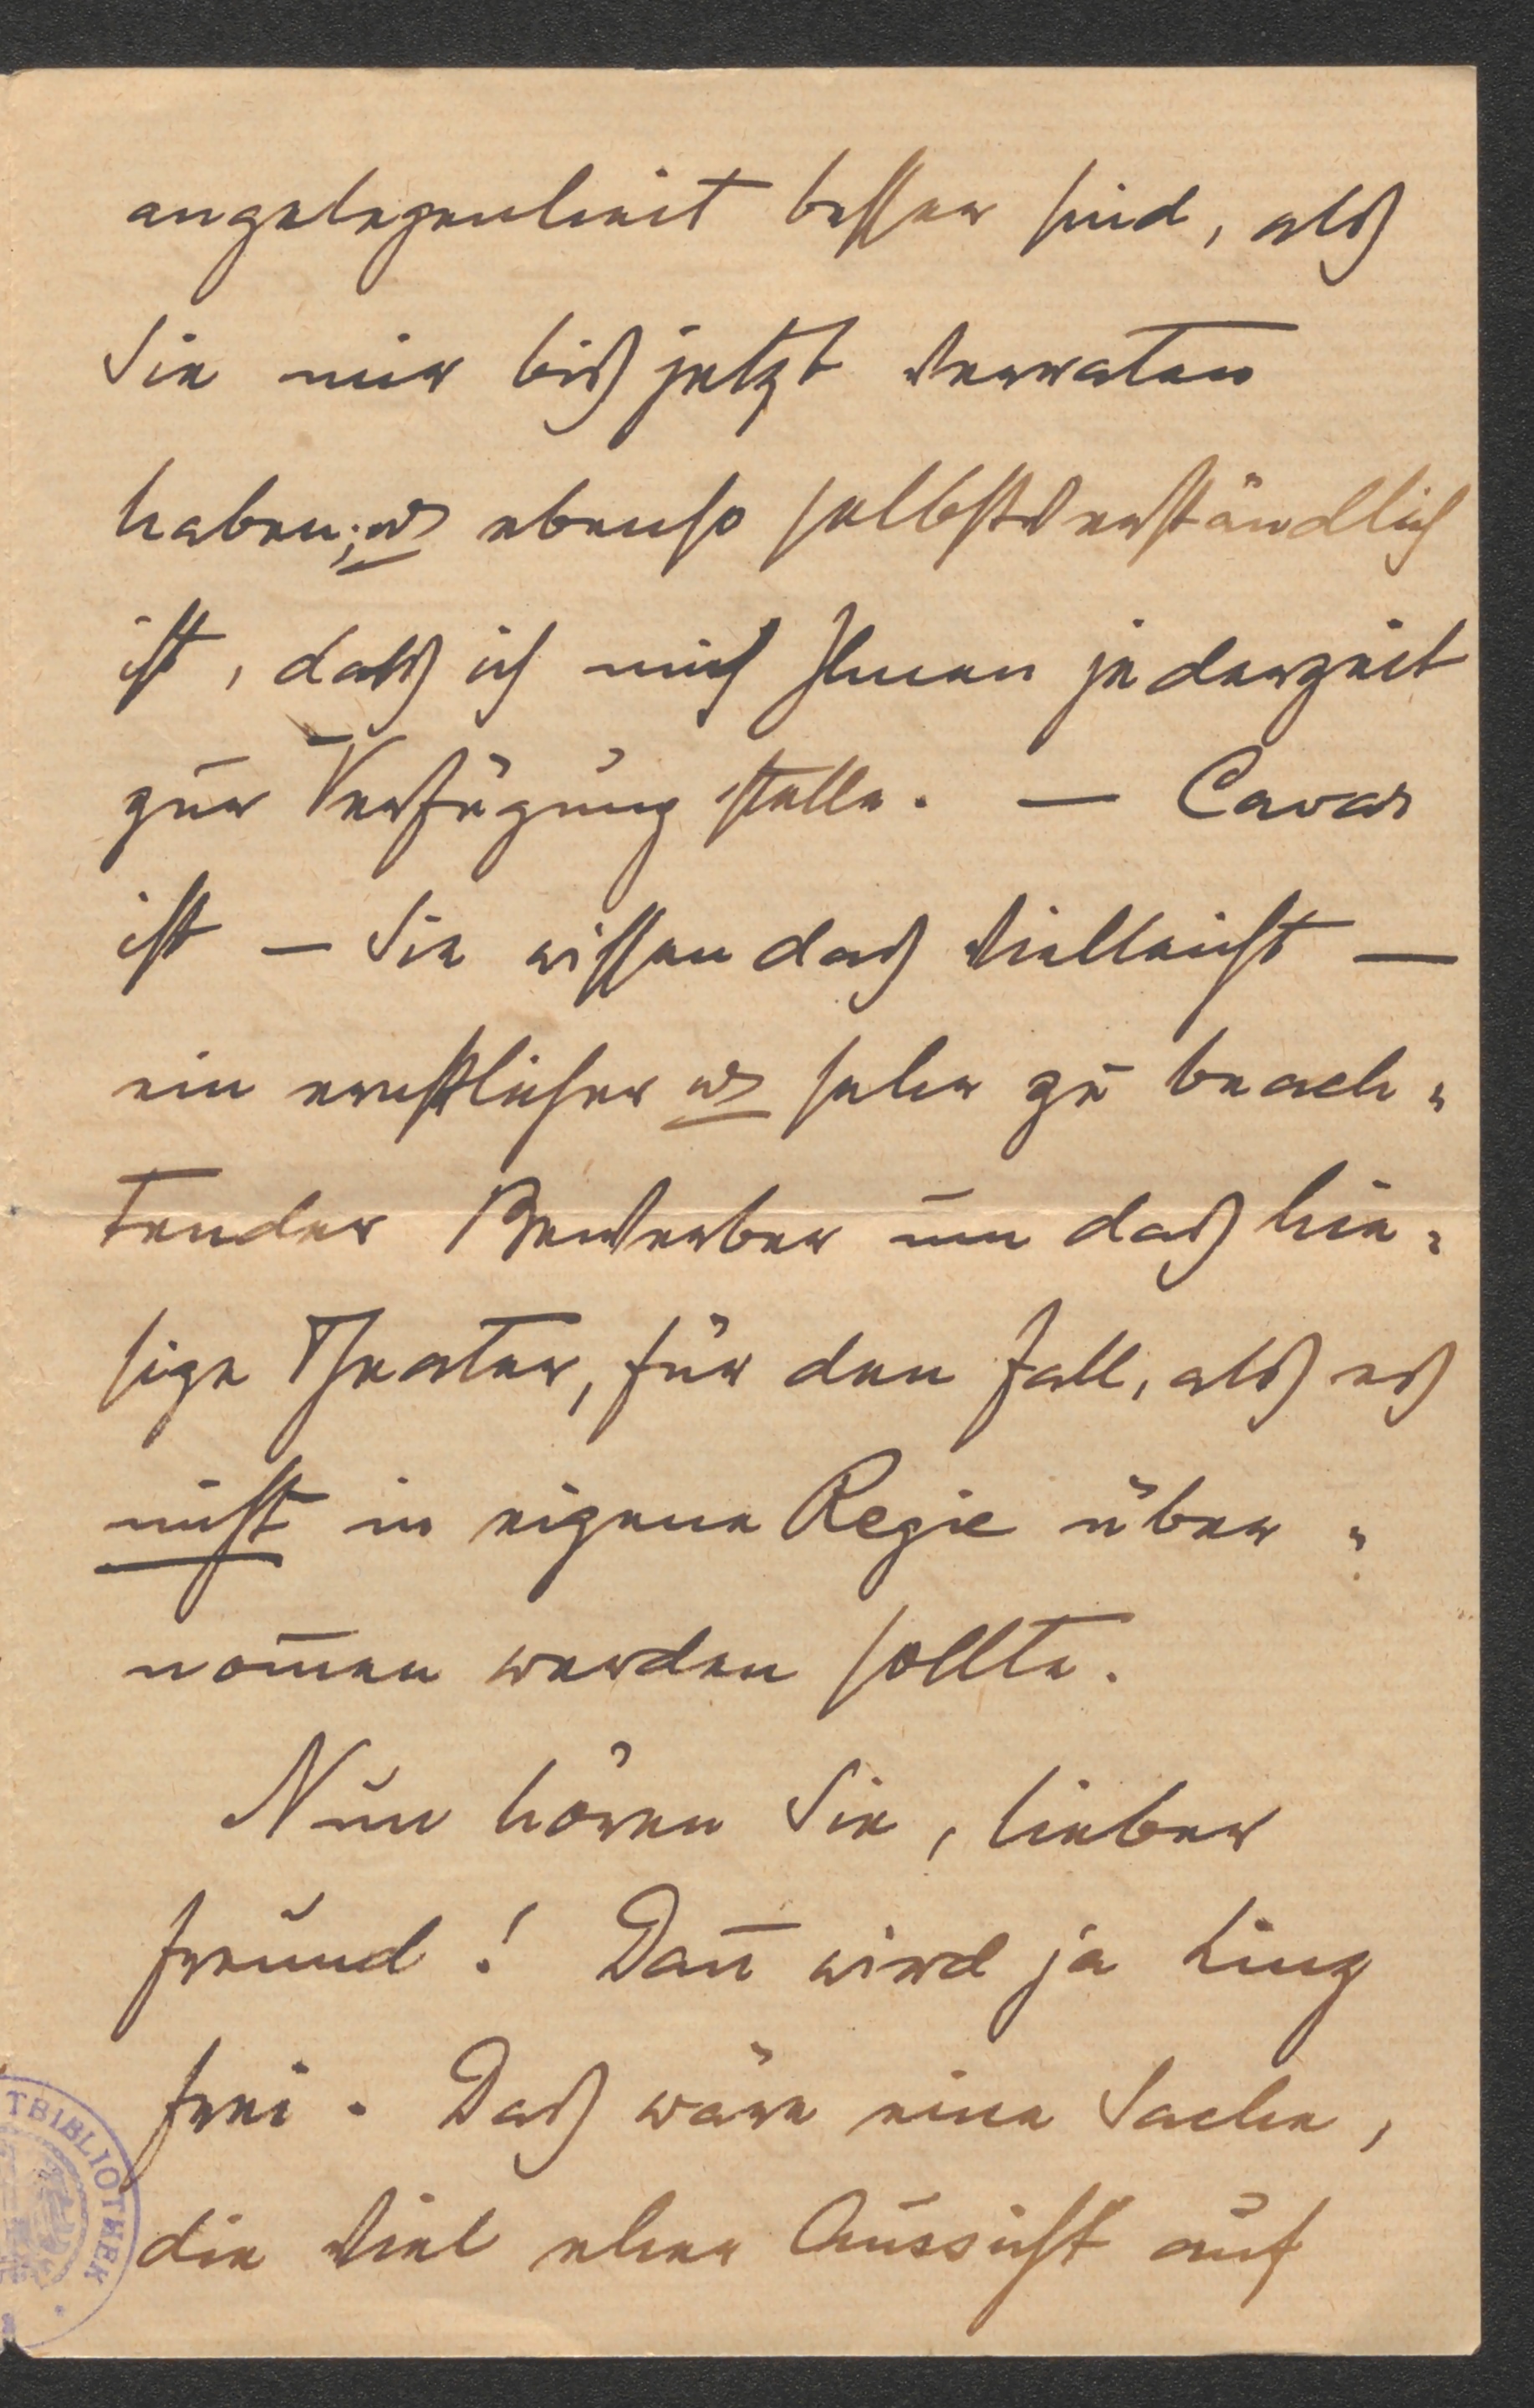 angelegenheit besser sind, als
Sie mir bis jetzt verraten
haben; u ebenso selbstverständlich
ist, daß ich mich Ihnen jederzeit
zur Verfügung stelle. — Cavar
ist — Sie wissen das vielleicht —
ein ernstlicher u sehr zu beach=
tender Bewerber um das hie=
sige Theater, für den Fall, als es
nicht in eigene Regie über=
nom̄en werden sollte.
Nun hören Sie, lieber
Freund! Dan̄ wird ja Linz
frei. Das wäre eine Sache,
die viel eher Aussicht auf
TBIBLIOTHEK